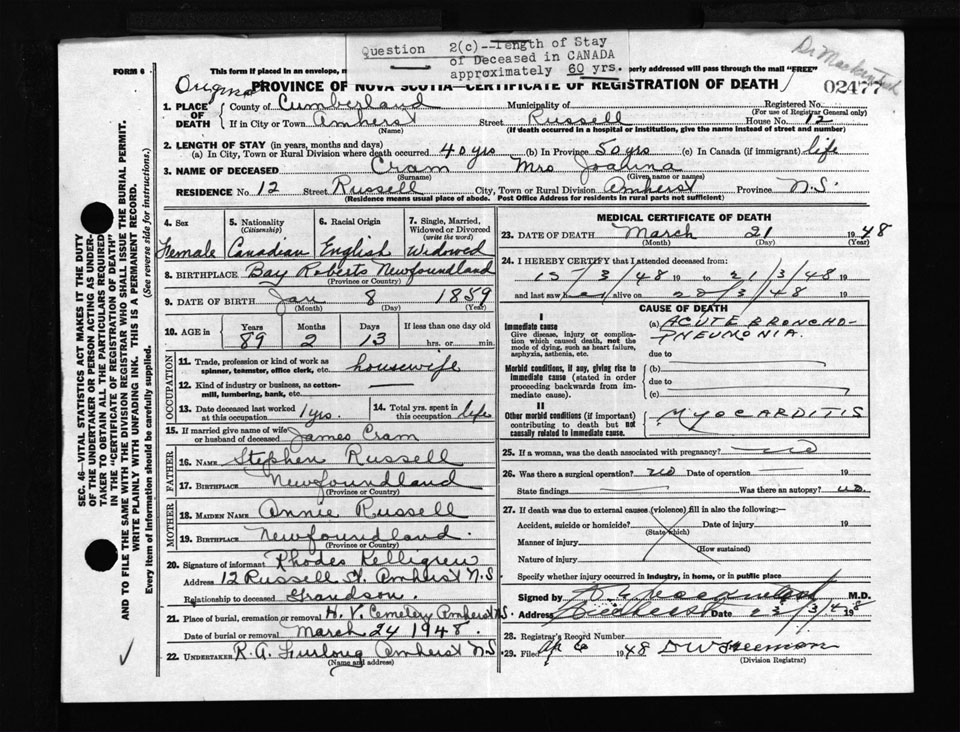 Question 2(c)--length of Stay
of Deceased in CANADA
approximately 60 yrs.
02477
FORM 6 This form if placed in an envelope, perly addressed will pass through the mail "FREE"
Original PROVINCE OF NOVA SCOTIA—CERTIFICATE OF REGISTRATION OF DEATH
1. PLACE OF DEATH County of Cumberland Municipality of Registered No.
(For use of Registrar General only)
If in City or Town Amherst Street Russell House No. 12
(Name) (If death occurred in a hospital or institution, give the name instead of street and number)
2. LENGTH OF STAY (in years, months and days)
(a) In City, Town or Rural Division where death occurred 40 yrs (b) In Province 50 yrs (c) In Canada (if immigrant) life
3. NAME OF DECEASED Cram Mrs Joanna
(Surname) (Given name or names)
RESIDENCE No 12 Street Russell City, Town or Rural Division Amherst Province N.S.
(Residence means usual place of abode. Post Office Address for residents in rural parts not sufficient)
4. Sex 5. Nationality (Citizenship) 6. Racial Origin 7. Single, Married, Widowed or Divorced (write the word)
Female Canadian English Widowed
8. BIRTHPLACE Bay Roberts Newfoundland
(Province or Country)
9. DATE OF BIRTH Jan 8 1859
(Month) (Day) (Year)
10. AGE in Years Months Days If less than one day old
89 2 13 hrs. or min.
OCCUPATION
11. Trade, profession or kind of work as spinner, teamster, office clerk, etc. housewife
12. Kind of industry or business, as cotton-mill, lumbering, bank, etc.
13. Date deceased last worked at this occupation 1 yrs. 14. Total yrs. spent in this occupation life
15. If married give name of wife or husband of deceased James Cram
FATHER
16. NAME Stephen Russell
17. BIRTHPLACE Newfoundland
(Province or Country)
MOTHER
18. MAIDEN NAME Annie Russell
19. BIRTHPLACE Newfoundland
(Province or Country)
20. Signature of informant Rhodes Kelligrew
Address 12 Russell St. Amherst N.S
Relationship to deceased Grandson.
21. Place of burial, cremation or removal H. V. Cemetery Amherst N.S.
Date of burial or removal March 24 1948.
22. UNDERTAKER R. A. Furlong Amherst N.S
(Name and address)
MEDICAL CERTIFICATE OF DEATH
23. DATE OF DEATH March 21 1948
(Month) (Day) (Year)
24. I HEREBY CERTIFY that I attended deceased from:
15/3/48 19 to 21/3/48 19
and last saw h alive on 20/3/48 19
CAUSE OF DEATH
I
Immediate cause
Give disease, injury or complication which caused death, not the mode of dying, such as heart failure, asphyxia, asthenia, etc.
(a) ACUTE BRONCHO-
PNEUMONIA
due to
Morbid conditions, if any, giving rise to immediate cause (stated in order proceeding backwards from immediate cause).
(b)
due to
(c)
II
Other morbid conditions (if important) contributing to death but not causally related to immediate cause.
MYOCARDITIS
25. If a woman, was the death associated with pregnancy? no
26. Was there a surgical operation? no Date of operation 19
State findings Was there an autopsy? no.
27. If death was due to external causes (violence) fill in also the following:
Accident, suicide or homicide? Date of injury 19
(State which)
Manner of injury
(How sustained)
Nature of injury
Specify whether injury occurred in industry, in home, or in public place
Signed by M.D.
Address Date 23/3/48
28. Registrar's Record Number
29. Filed Ap 6 1948 D W Freeman
(Division Registrar)
SEC. 46—VITAL STATISTICS ACT MAKES IT THE DUTY
OF THE UNDERTAKER OR PERSON ACTING AS UNDER-
TAKER TO OBTAIN ALL THE PARTICULARS REQUIRED
IN THE "CERTIFICATE OF REGISTRATION OF DEATH"
AND TO FILE THE SAME WITH THE DIVISION REGISTRAR WHO SHALL ISSUE THE BURIAL PERMIT.
WRITE PLAINLY WITH UNFADING INK. THIS IS A PERMANENT RECORD.
Every item of information should be carefully supplied. (See reverse side for instructions.)